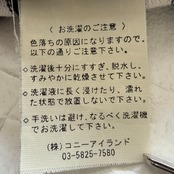 〈お洗濯のご注意〉
色落ちの原因になりますので、
以下の通りご注意下さい。
◇洗濯後十分にすすぎ、脱水し、
すみやかに乾燥させて下さい。
◇洗濯液に長く浸けたり、濡れ
た状態で放置しないで下さい。
◇手洗いは避け、なるべく洗濯機
でお洗濯して下さい。
(株)コニーアイランド
03-5825-7580